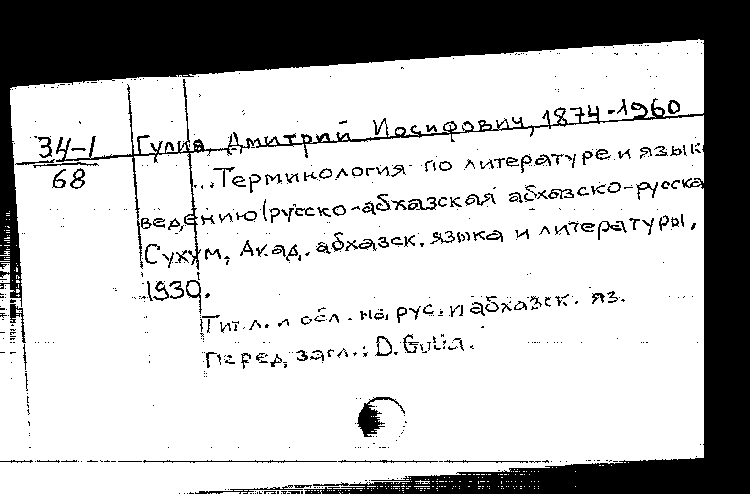 34-1
68
Гулиа, Дмитрий Иосифович, 1874-1960
...Терминология по литературе и язык
ведению (русско-абхазская абхазско-русска
Сухум, Акад. абхазск. языка и литературы,
1930.
Тит.л. и обл. на рус. и абхазск. яз.
Перед загл.: D. Gulia.